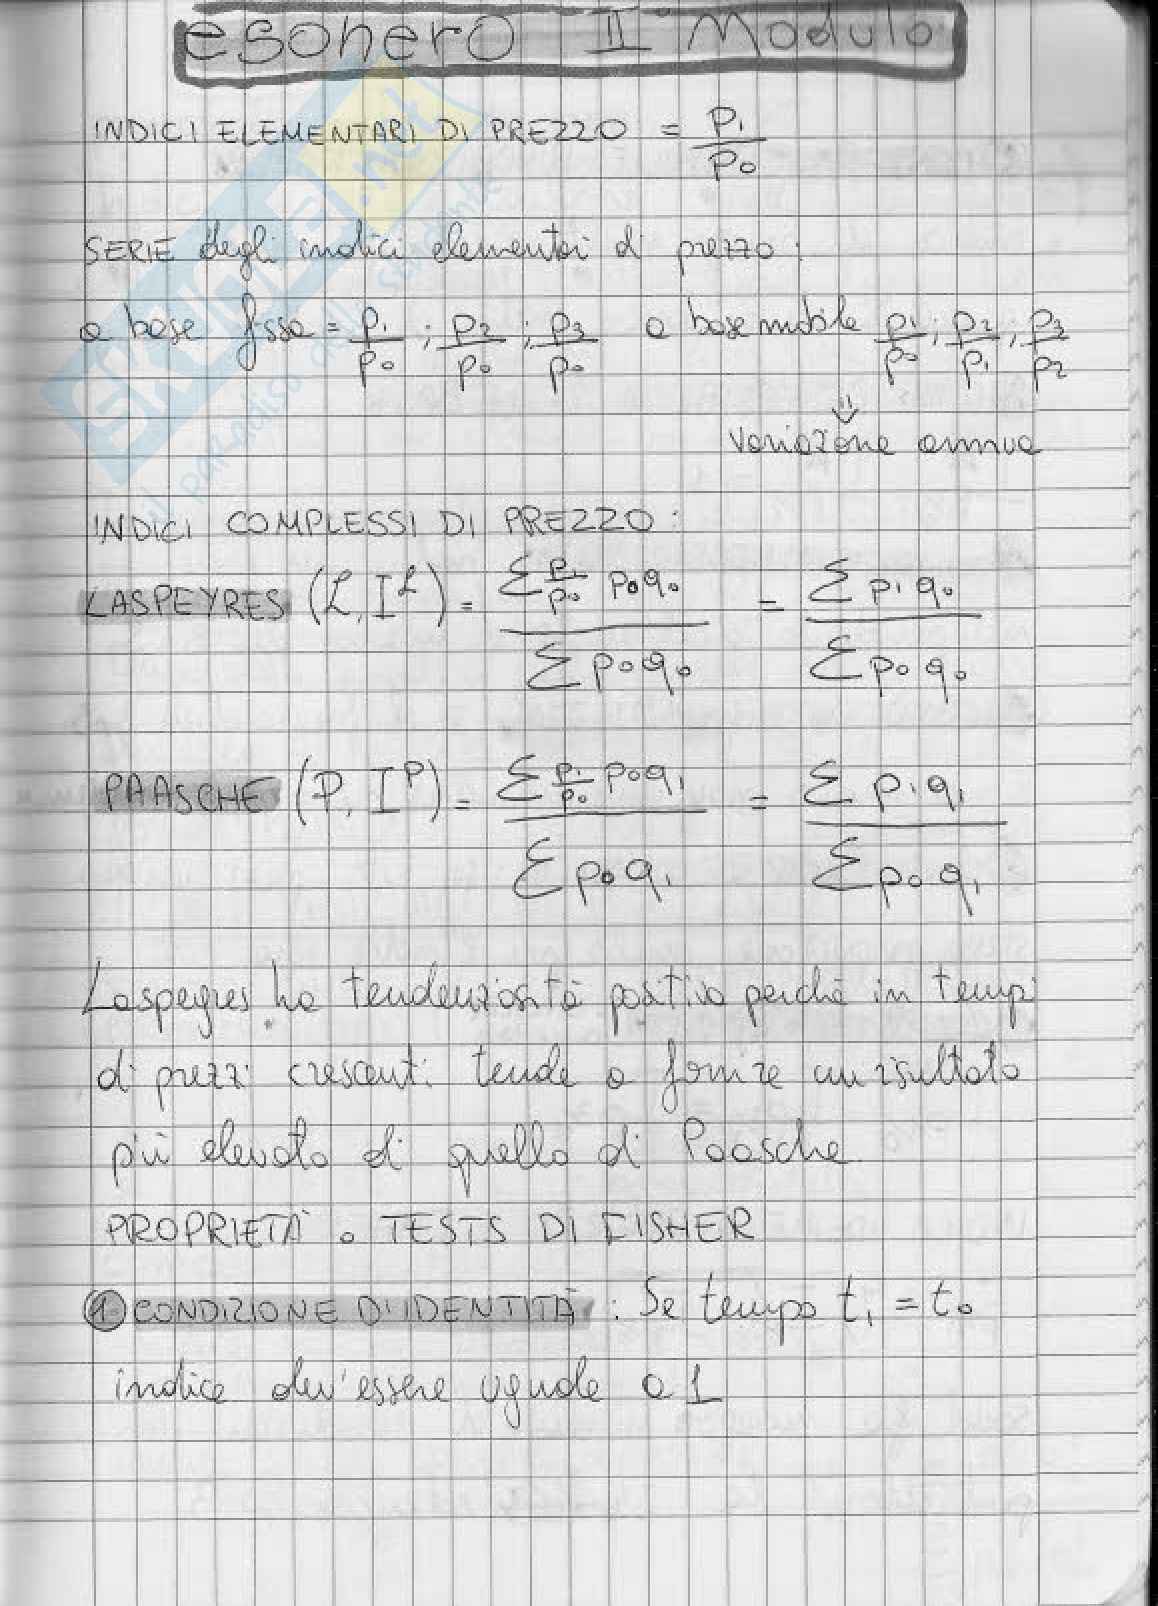 esonero II° Modulo
INDICI ELEMENTARI DI PREZZO = p₁/p₀
SERIE degli indici elementari di prezzo:
a base fissa = p₁/p₀ ; p₂/p₀ ; p₃/p₀ a base mobile p₁/p₀ ; p₂/p₁ ; p₃/p₂
⇓
variazione annua
INDICI COMPLESSI DI PREZZO:
LASPEYRES (L, Iᴸ) = Σ p₁/p₀ p₀q₀ / Σ p₀q₀ = Σ p₁q₀ / Σ p₀q₀
PAASCHE (P, Iᴾ) = Σ p₁/p₀ p₀q₁ / Σ p₀q₁ = Σ p₁q₁ / Σ p₀q₁
Laspeyres ha tendenziosità positiva perché in tempi
di prezzi crescenti tende a fornire un risultato
più elevato di quello di Paasche
PROPRIETÀ o TESTS DI FISHER
① CONDIZIONE D'IDENTITÀ: Se tempo t₁ = t₀
indice dev'essere uguale a 1
SKUOLA.net
il paradiso dello studente